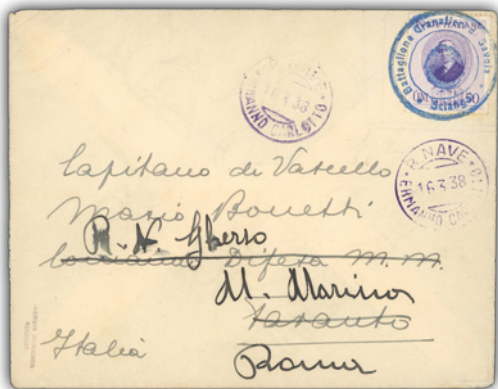 Battaglione Granatieri di Savoia
* Sciangai *
R. NAVE
16 3 38
ERMANNO CARLOTTO
* R. NAVE *
16.3.38
ERMANNO CAR
Capitano di Vascello
Mario Bonetti
R. N. Gherso
Comando Difesa M. M.
M. Marina
Taranto
Italia
Roma